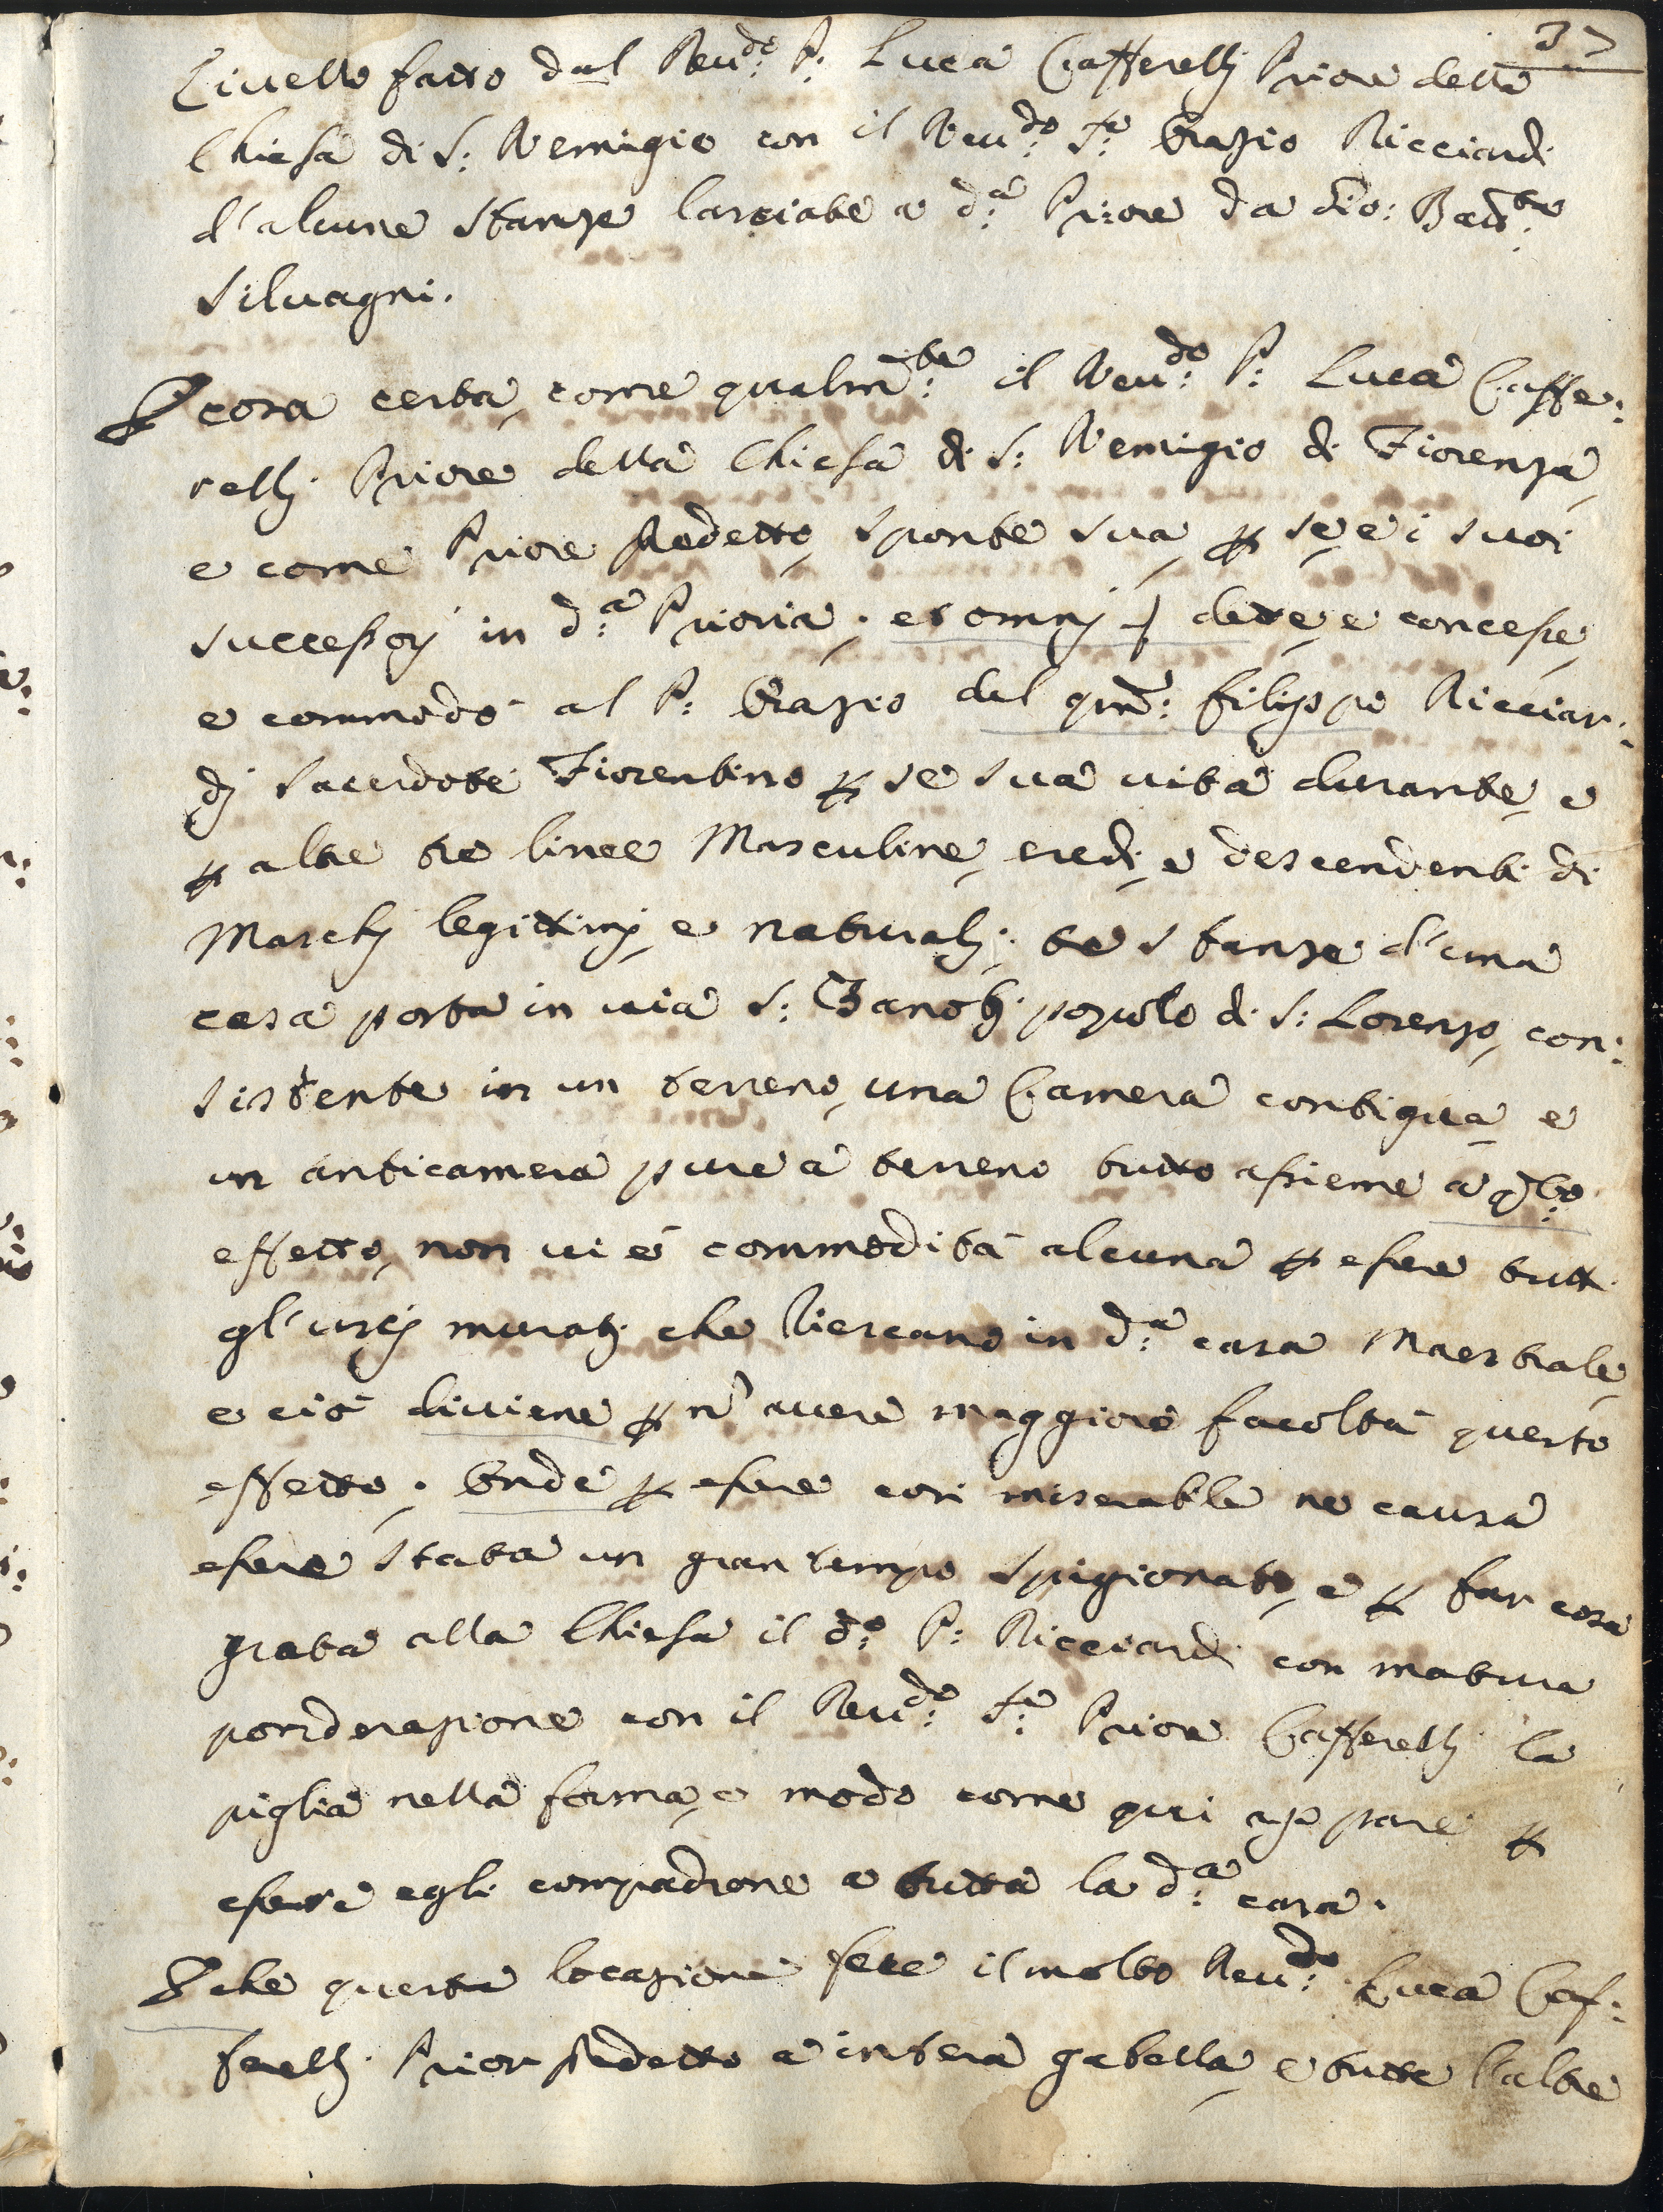 37
Livello fatto dal Reu:do P: Luca Cafferellj Priore della
Chiesa di S: Remigio con il Reu:do Sr: Orazio Ricciardi
d'alcune stanze lasciate a d:a Priore da Gio: Batt:a
Siluagni.
P cosa certa, come qualm:te il Reu:do P: Luca Caffe:
rellj Priore della Chiesa di S: Remigio di Fiorenza,
e come Priore predetto, sponte sua, p se, e i suoi
successorj in d:a Prioria; et omnj dette, e concesse,
e commodò al P: Orazio del qm: Filippo Ricciar:
dj Sacerdote Fiorentino p se sua uita durante, e
p altre tre linee Masculine, eredi, e descendenti di
Maschj legittimj, e naturalj; tre stanze d'una
casa posta in uia S: Zanobj popolo di S: Lorenzo, con:
sistente in un terreno, una Camera contigua, e
un anticamera pure à terreno tutto assieme à q:to
effetto, non ui è commodità alcuna p essere tutti
gl'uscj muratj che riescano in d:a casa Maestrale,
e ciò diuiene p nõ auere maggiore facoltà questo
effetto. Onde p essere così miserabile ne causa
essere stata un gran tempo spigionato, e p far cosa
grata alla Chiesa il d:o P: Ricciardi con matura
ponderazione con il Reu:do Sr: Priore Cafferellj la
piglia nella forma, e modo come qui appare p
essere egli compadrone a tutta la d:a casa.
E che questa locazione fece il molto Reu:do Luca Caf:
ferellj Prior predetto a intera gabella, e tutte l'altre